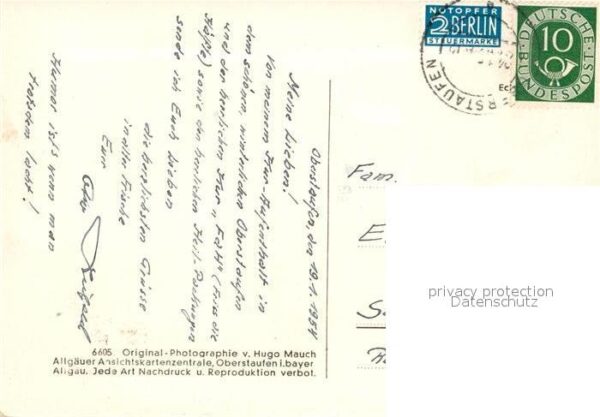 Oberstaufen, den 19.1.1954
Meine Lieben!
Von meinem Kur-Aufenthalt in
dem schönen, winterlichen Oberstaufen
und den herrlichen Kur "Fahrt" (Eisodie
Hölle) sowie den herrlichen Heil-Packungen
sende ich Euch Lieben
die herzlichsten Grüsse
in alter Frische
Euer
Humor ist's wenn man
trotzdem lacht!
6605 Original-Photographie v. Hugo Mauch
Allgäuer Ansichtskartenzentrale, Oberstaufen i. bayer
Allgäu. Jede Art Nachdruck u. Reproduktion verbot.
NOTOPFER
2 BERLIN
STEUERMARKE
DEUTSCHE
BUNDESPOST
10
OBERSTAUFEN
Fam.
privacy protection
Datenschutz